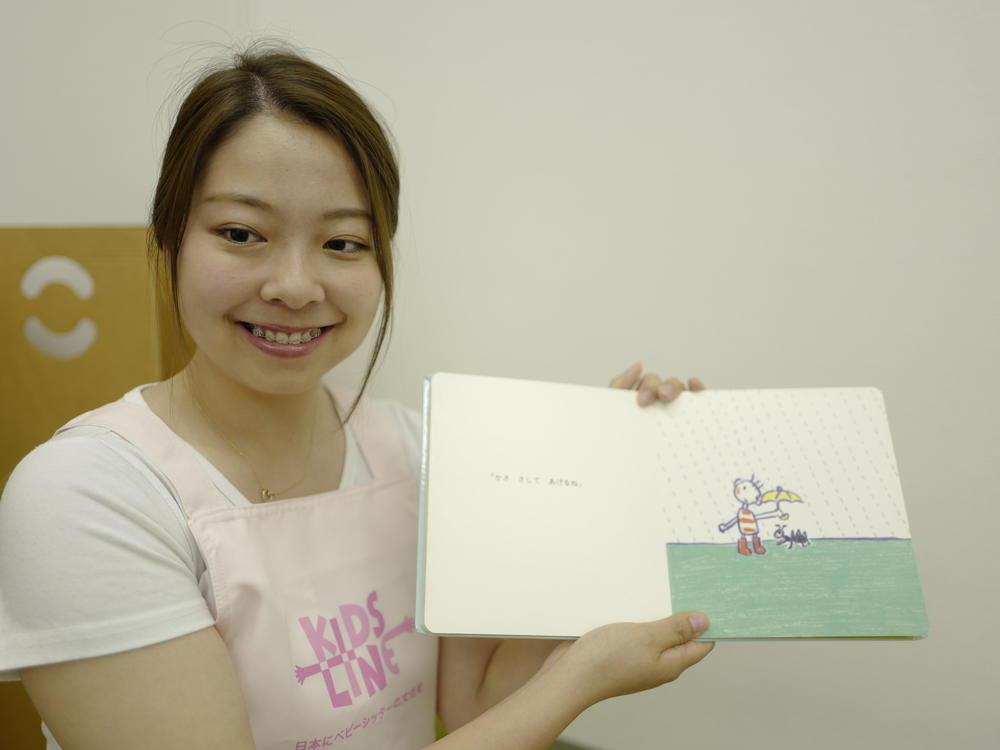 「かさ　さして　あげるね」
KIDS
LINE
日本にベビーシッターの文化を